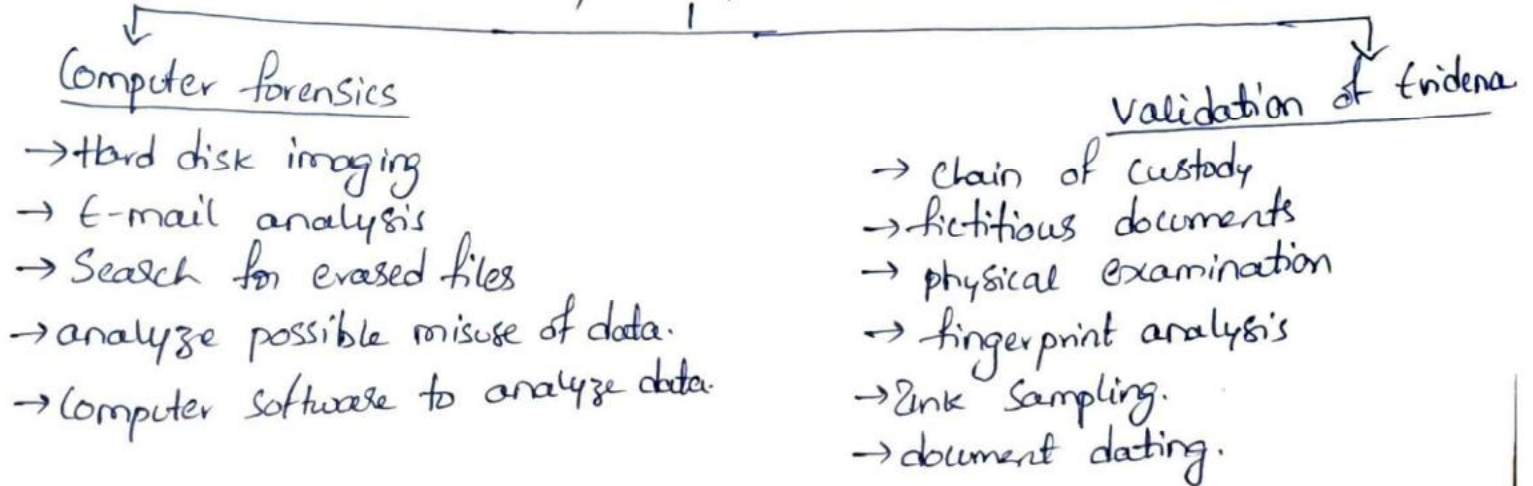 Computer forensics
→ Hard disk imaging
→ E-mail analysis
→ Search for erased files
→ analyze possible misuse of data.
→ Computer software to analyze data.
Validation of Evidence
→ Chain of custody
→ fictitious documents
→ physical examination
→ fingerprint analysis
→ Ink Sampling.
→ document dating.